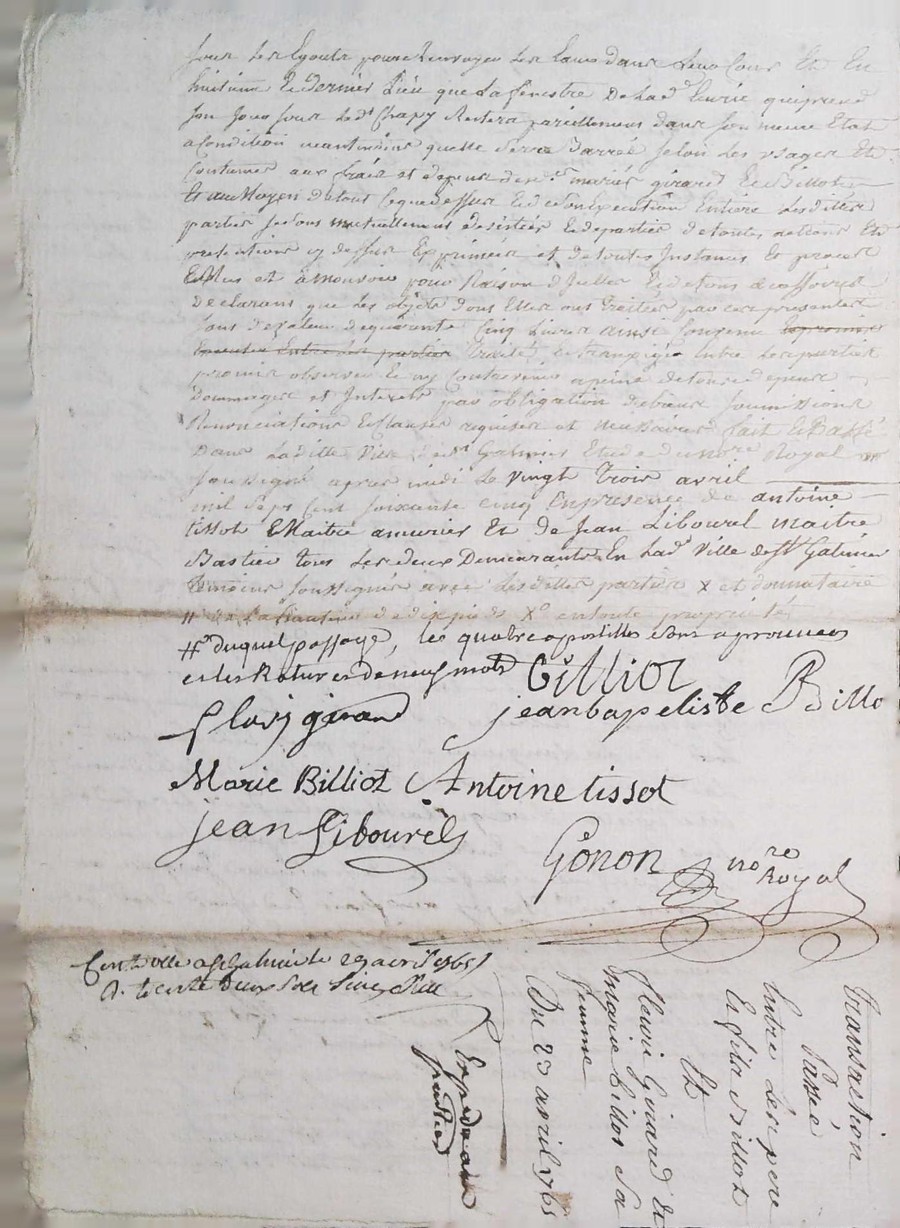 sous les Egouts pour Renvoyer les Eaux dans leur Cour Et En
huitieme Et dernier Lieu que La fenestre De lad. Ecurie qui prend
son Jour sous led. Chapy Restera pareillement dans son meme Etat
a Condition neantmoins quelle sera Barrée selon les usages Et
Coutumes aux fraix et depens des mariés girard Et Billiot
Et au Moyen de tout ce que dessus Et de son Execution Entiere lesdittes
parties se sont mutuellement desistées Et departies de toutes actions Et
pretentions cy dessus Exprimées et de toutes Instances Et proces
Esmus et a mouvoir pour Raison d'Icelles
declarant que les objets dont Elles ont traittés par ces presentes
sont de valeur de quarante Cinq Livres ainsi Convenu
Executer Entre les parties traité, et transigé Entre les parties
promis observer Et ny Contrevenir a peine de tous depens
dommages et Interets par obligation de biens soumissions
Renonciations Et Clauses requises et necessaires fait Et Passé
Dans Laditte Ville de St Galmier Etude du nore Royal
soussigné apres midi le vingt trois avril
mil sept Cent soixante Cinq En presence de antoine
tissot Maitre amurier Et de Jean Libourel maitre
Bastier tous les deux Demeurants En lad. Ville de St Galmier
temoins soussignés avec lesdittes parties X et donnataire
// de la hauteur de dix pieds X en toute propriété
# duquel passage, les quatre apostilles sont aprouvees
et les Ratures de neuf mots Billiot
fleury girard jeanbapeliste Billo
Marie Billiot Antoine tissot
jean Libourel
Gonon nore Royal
Contrôllé a St Galmier le 29 avril 1765
Transaction
Passée
Entre Les pere
Et fils Billiot
Et
fleuri Girard &
marie billot Sa
femme
Du 23 avril 1765
Expedié aux
parties